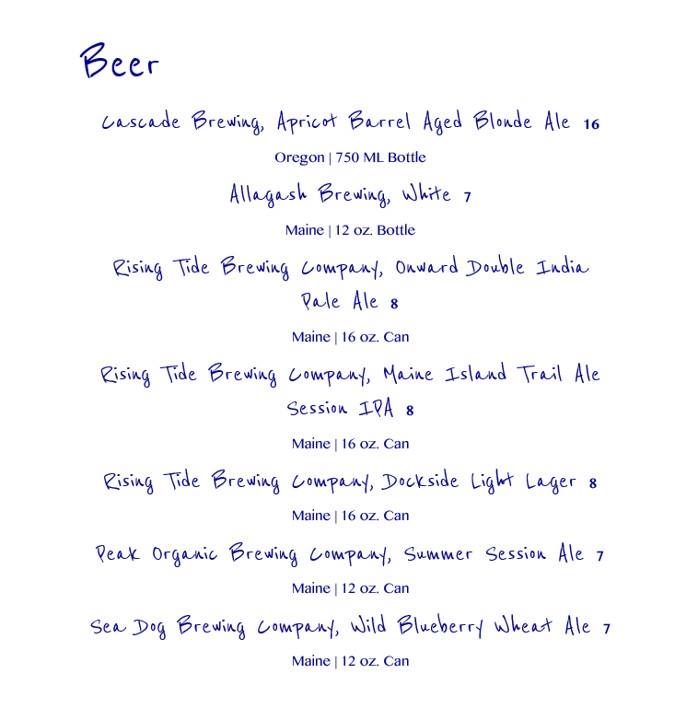 Beer
Cascade Brewing, Apricot Barrel Aged Blonde Ale 16
Oregon | 750 ML Bottle
Allagash Brewing, White 7
Maine | 12 oz. Bottle
Rising Tide Brewing Company, Onward Double India
Pale Ale 8
Maine | 16 oz. Can
Rising Tide Brewing Company, Maine Island Trail Ale
Session IPA 8
Maine | 16 oz. Can
Rising Tide Brewing Company, Dockside Light Lager 8
Maine | 16 oz. Can
Peak Organic Brewing Company, Summer Session Ale 7
Maine | 12 oz. Can
Sea Dog Brewing Company, Wild Blueberry Wheat Ale 7
Maine | 12 oz. Can